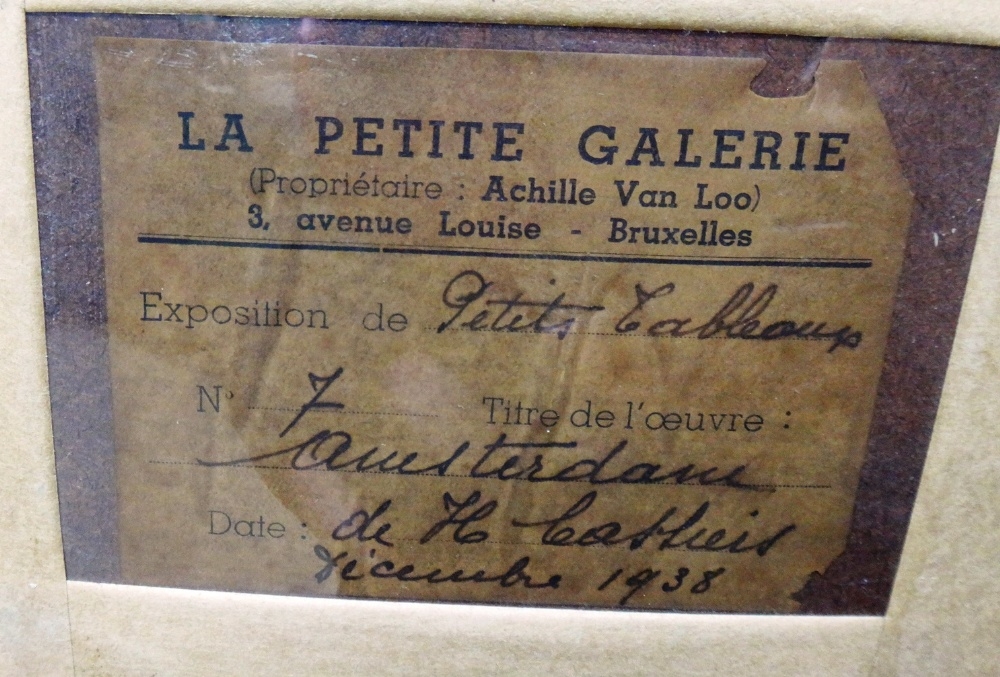 LA PETITE GALERIE
(Propriétaire : Achille Van Loo)
3, avenue Louise - Bruxelles
Exposition de Petits Tableaux
N° 7 Titre de l'œuvre :
Amsterdam
Date : de H Cassiers
Décembre 1938